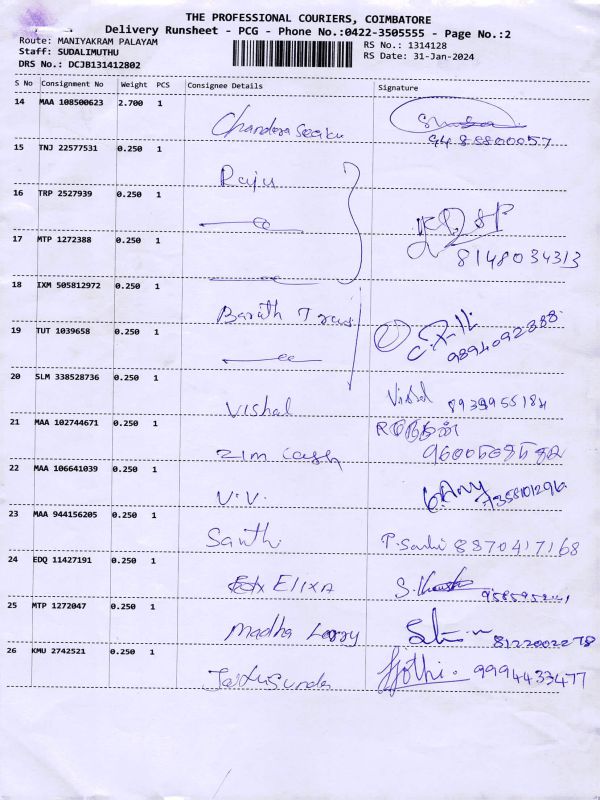 THE PROFESSIONAL COURIERS, COIMBATORE
Delivery Runsheet - PCG - Phone No.:0422-3505555 - Page No.:2
Route: MANIYAKRAM PALAYAM
RS No.: 1314128
Staff: SUDALIMUTHU
RS Date: 31-Jan-2024
DRS No.: DCJB131412802
S No Consignment No Weight PCS Consignee Details Signature
14 MAA 108500623 2.700 1
9488800057
15 TNJ 22577531 0.250 1
Raju
16 TRP 2527939 0.250 1
17 MTP 1272388 0.250 1
8148034313
18 IXM 505812972 0.250 1
Barath
19 TUT 1039658 0.250 1
9894092888
20 SLM 338528736 0.250 1
Vishal
21 MAA 102744671 0.250 1
Zim Cash
22 MAA 106641039 0.250 1
V.V.
23 MAA 944156205 0.250 1
Santh 8870417168
24 EDQ 11427191 0.250 1
Elixa
25 MTP 1272047 0.250 1
Madha Lorry 8122002278
26 KMU 2742521 0.250 1
Jothi. 9994433477